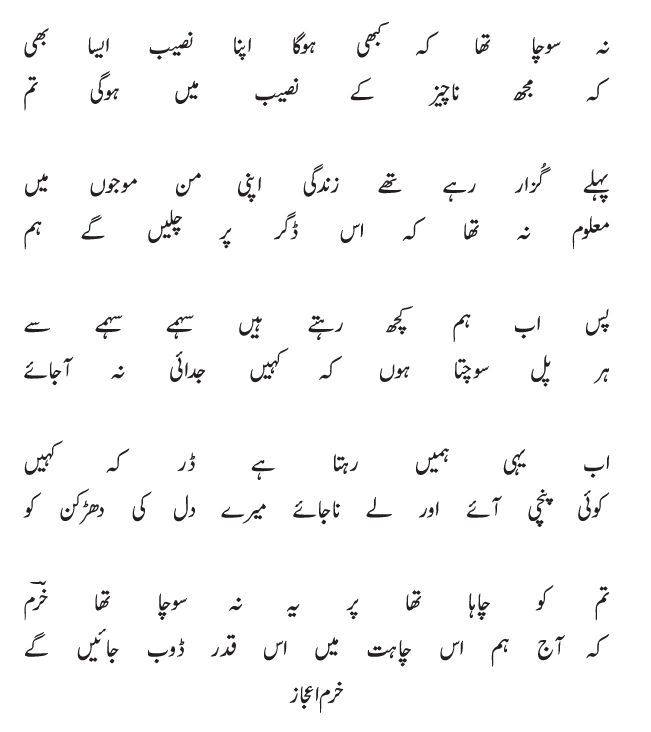 نہ سوچا تھا کہ کبھی ہوگا اپنا نصیب ایسا بھی
کہ مجھ ناچیز کے نصیب میں ہوگی تم
پہلے گُزار رہے تھے زندگی اپنی من موجوں میں
معلوم نہ تھا کہ اس ڈگر پر چلیں گے ہم
پس اب ہم کچھ رہتے ہیں سہمے سہمے سے
ہر پل سوچتا ہوں کہ کہیں جدائی نہ آجائے
اب یہی ہمیں رہتا ہے ڈر کہ کہیں
کوئی پنچی آئے اور لے ناجائے میرے دل کی دھڑکن کو
تم کو چاہا تھا پر یہ نہ سوچا تھا خرمؔ
کہ آج ہم اس چاہت میں اس قدر ڈوب جائیں گے
خرم اعجاز